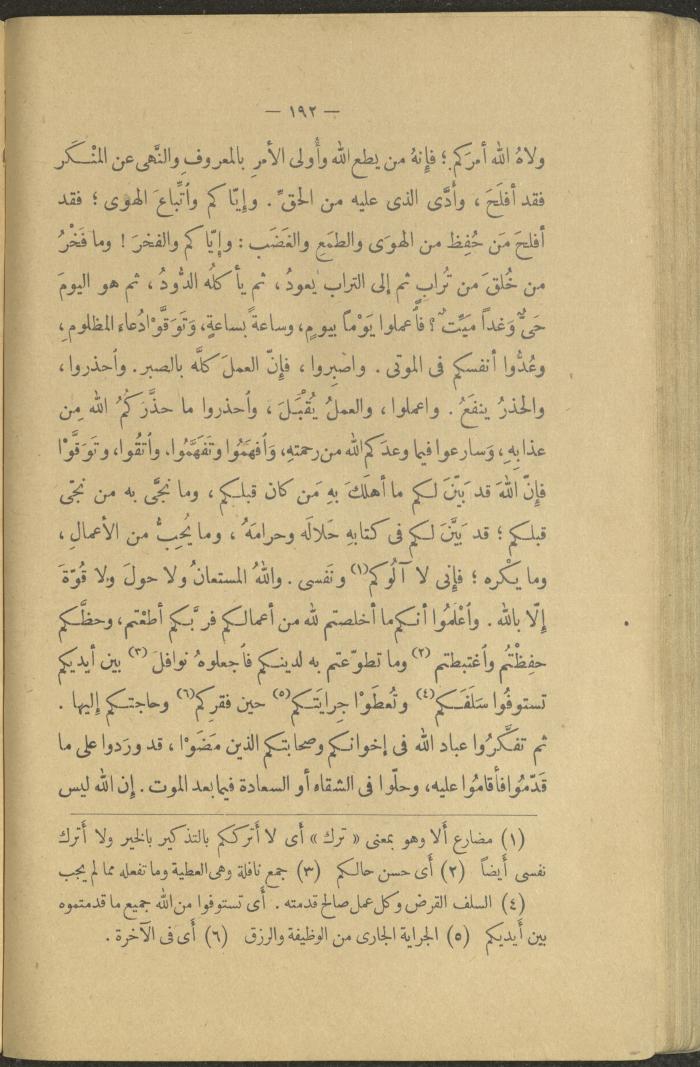 — ١٩٢ —
ولاهُ الله أمرَكم ؛ فإنهُ من يطع الله وأُولى الأمرِ بالمعروفِ والنَّهى عن المنْـكَر
فقد أفلَحَ ، وأدَّى الذى عليه من الحقِّ . وإيّاكم وأتِّباعَ الهوى ؛ فقد
أفلحَ مَن حُفِظ من الهوَى والطمَعِ والغَضَب : وإيّاكم والفخرَ ! وما فَخْرُ
من خُلقَ من تُرابٍ ثم إلى التراب يعودُ ، ثم يأكلُه الدُّودُ ، ثم هو اليومَ
حَىٌّ وَغداً مَيِّت ؟ فأعملوا يَوْماً بيومٍ، وساعةً بساعةٍ، وَتَوَقَّوْا دُعاءَ المظلوم ،
وعُدُّوا أنفسكم فى الموتى . واصْبِروا ، فإنّ العملَ كلَّه بالصبر . وأحذروا ،
والحذرُ ينفَعُ . واعملوا ، والعملُ يُقْبَلَ ، وأحذروا ما حذَّرَكُمُ الله مِن
عذابِهِ ، وَسارعوا فيما وعدَكم الله من رحمتهِ، وَأفهمُوا وتَفهَّمُوا، وأتقُوا، وتَوَقَّوْا
فإنّ اللهَ قد بَيّنَ لـكم ما أهلَكَ بهِ مَن كان قبلـكم ، وما نجَّى به من نجّى
قبلـكم ؛ قد بَيَّنَ لـكم فى كتابهِ حَلالَه وحرامَهُ ، وما يُحِبُّ من الأعمالِ ،
وما يكْره ؛ فإنى لا آلُوكم (١) ونَفسى . واللهُ المستعانُ ولا حولَ ولا قُوّةَ
إلّا بالله . وأعْلَمُوا أنـكم ما أخلصتم لله من أعمالـكم فربَّـكم أطعْتم ، وحظَّـكم
حفِظْتُم وأغتبطتم (٢) وما تطوّعتم به لدينـكم فأجعلوهُ نوافلَ (٣) بين أيديكم
تستوفُوا سَلَفَـكم (٤) وتُعطَوْا جِرايَتَـكم (٥) حين فقركم (٦) وحاجتـكم إليها .
ثم تفكَّرُوا عباد الله فى إخوانـكم وصحابتـكم الذين مضَوْا ، قد ورَدوا على ما
قدّمُوا فأقامُوا عليه، وحلّوا فى الشقاء أو السعادة فيما بعد الموت . إن الله ليس
(١) مضارع ألا وهو بمعنى « ترك » أى لا أترككم بالتذكير بالخير ولا أترك
نفسى أيضاً (٢) أى حسن حالـكم (٣) جمع نافلة وهى العطية وما تفعله مما لم يجب
(٤) السلف القرض وكل عمل صالح قدمته . أى تستوفوا من الله جميع ما قدمتموه
بين أيديكم (٥) الجراية الجارى من الوظيفة والرزق (٦) أى فى الآخرة .